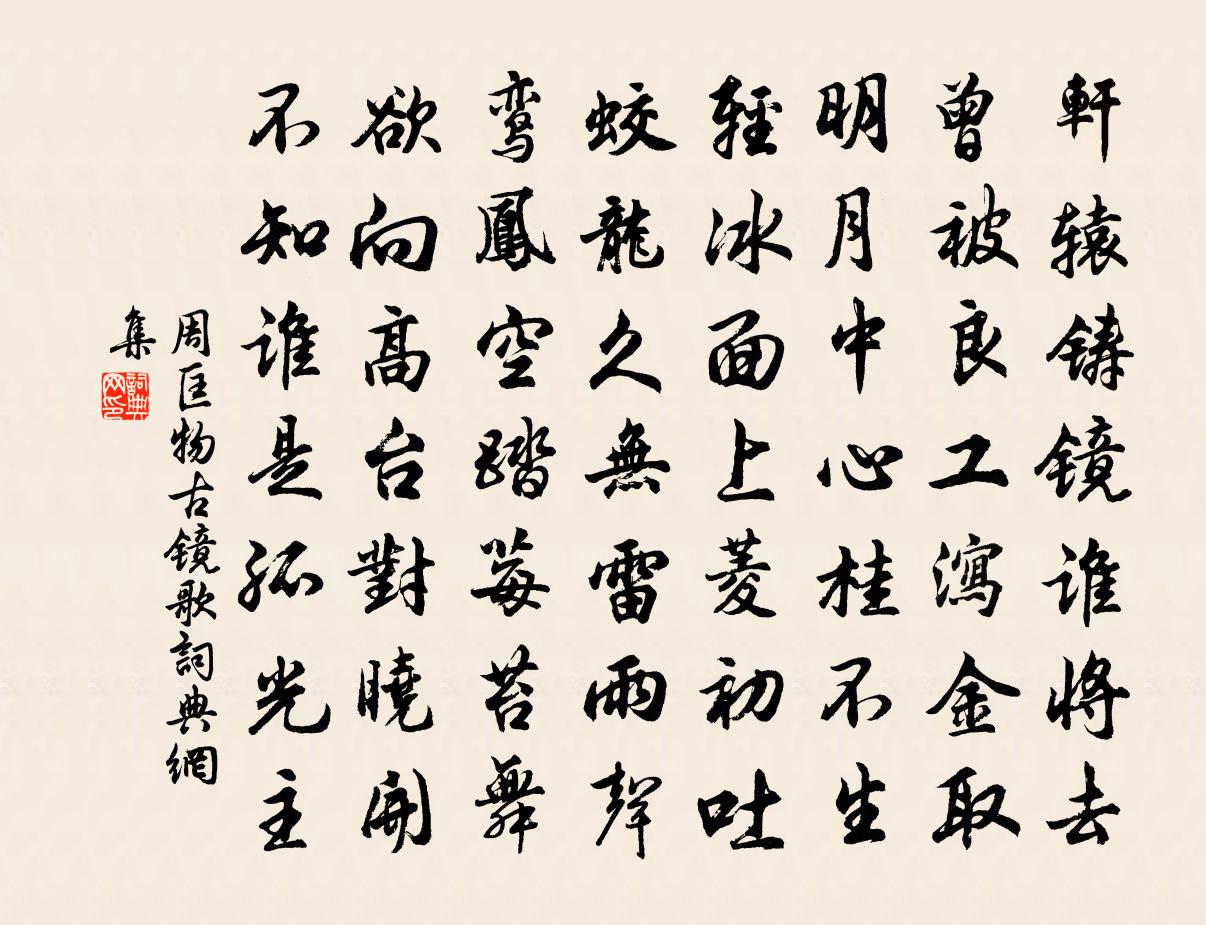 軒辕鑄镜谁將去
曾被良工瀉金取
明月中心桂不生
輕冰面上菱初吐
蛟龍久無雷雨聲
鸾鳳空踏莓苔舞
欲向高台對曉開
不知谁是孤光主
周匡物古镜歌詞典網
集
詞典
网印